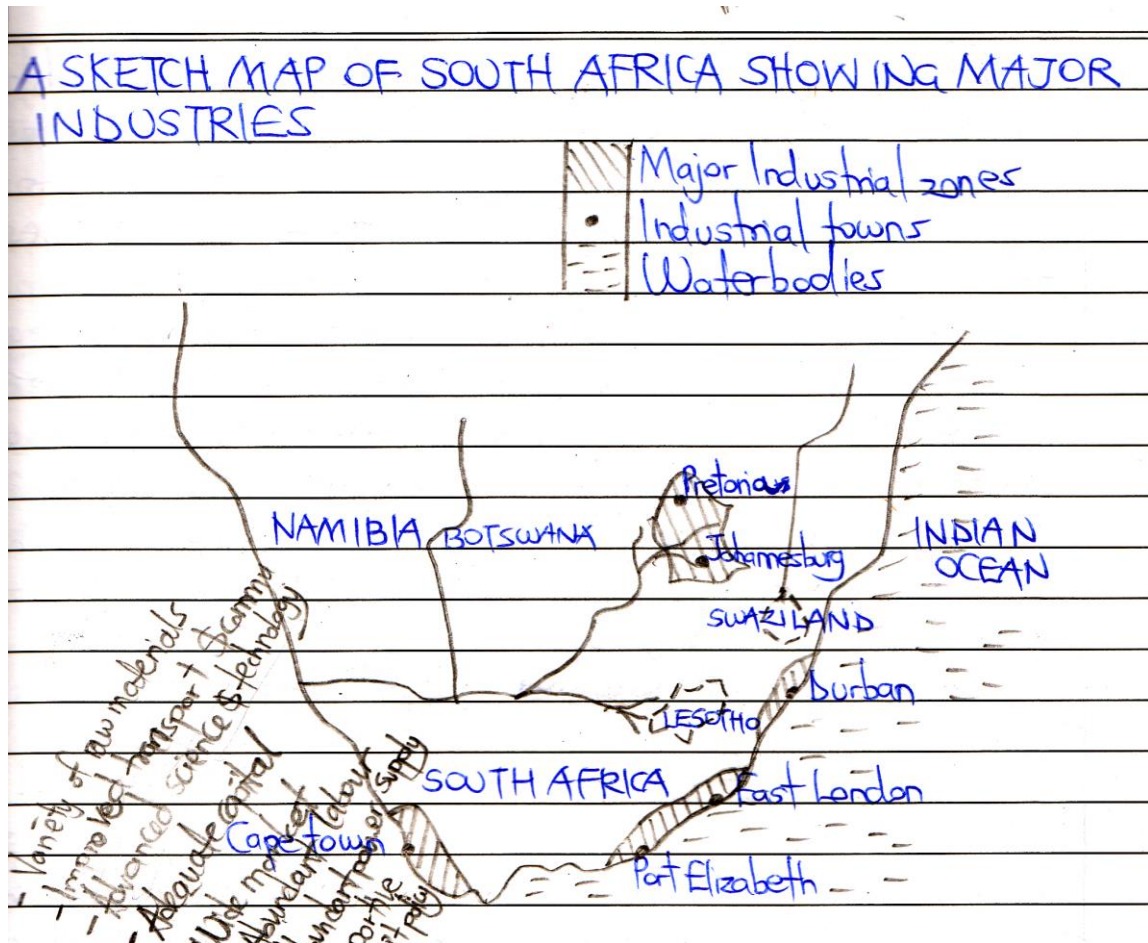 A SKETCH MAP OF SOUTH AFRICA SHOWING MAJOR
INDUSTRIES
Major Industrial zones
Industrial towns
Waterbodies
Pretorious
NAMIBIA
BOTSWANA
Johannesburg
INDIAN
OCEAN
SWAZILAND
Durban
LESOTHO
SOUTH AFRICA
East London
Cape town
Port Elizabeth
- Variety of raw materials
- Improved transport & commu
- Advanced science & technology
- Adequate capital
Wide market
Abundant labour
power supply